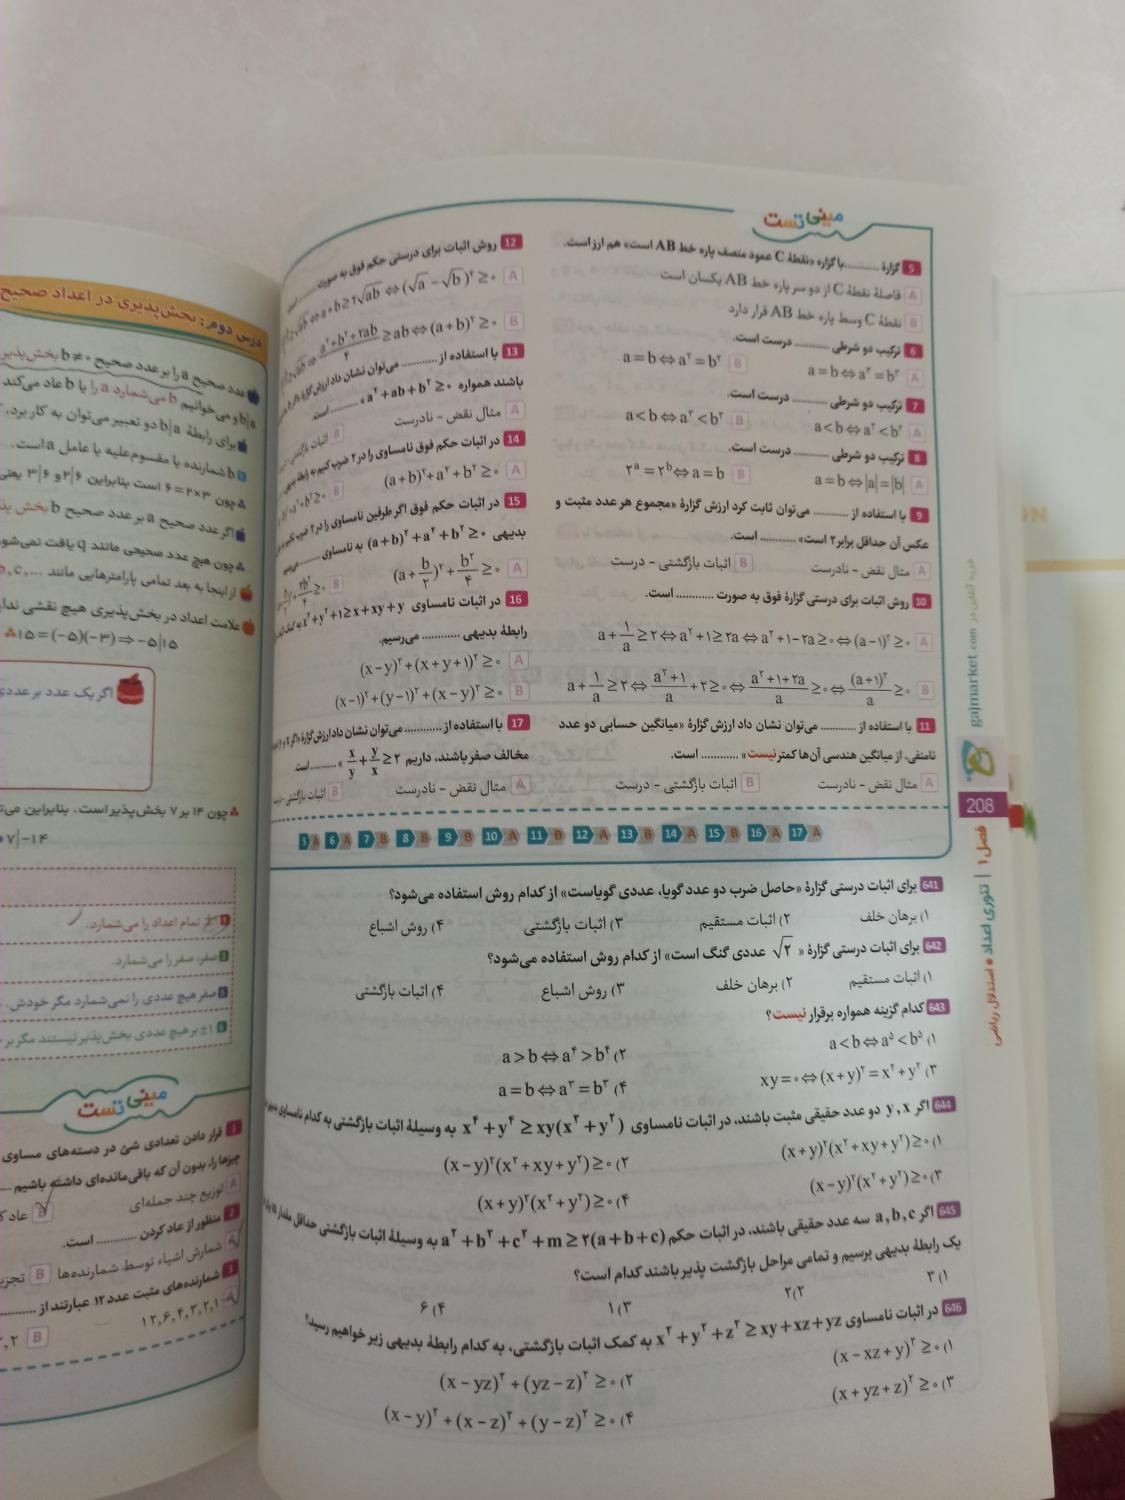 مینی تست
5 گزارهٔ ........... با گزاره «نقطهٔ C عمود منصف پاره خط AB است» هم ارز است.
A فاصلهٔ نقطهٔ C از دو سر پاره خط AB یکسان است
B نقطهٔ C وسط پاره خط AB قرار دارد
6 ترکیب دو شرطی ........... درست است.
A a = b ⇔ a³ = b³ B a = b ⇔ a² = b²
7 ترکیب دو شرطی ........... درست است.
A a < b ⇔ a² < b² B a < b ⇔ a³ < b³
8 ترکیب دو شرطی ........... درست است.
A a = b ⇔ |a| = |b| B ۲ᵃ = ۲ᵇ ⇔ a = b
9 با استفاده از ........... می‌توان ثابت کرد ارزش گزارهٔ «مجموع هر عدد مثبت و
عکس آن حداقل برابر ۲ است» ........... است.
A مثال نقض - نادرست B اثبات بازگشتی - درست
10 روش اثبات برای درستی گزارهٔ فوق به صورت ........... است.
A a + ۱/a ≥ ۲ ⇔ a² + ۱ ≥ ۲a ⇔ a² + ۱ - ۲a ≥ ۰ ⇔ (a - ۱)² ≥ ۰
B a + ۱/a ≥ ۲ ⇔ (a² + ۱)/a + ۲ ≥ ۰ ⇔ (a² + ۱ + ۲a)/a ≥ ۰ ⇔ (a + ۱)²/a ≥ ۰
11 با استفاده از ........... می‌توان نشان داد ارزش گزارهٔ «میانگین حسابی دو عدد
نامنفی، از میانگین هندسی آن‌ها کمتر نیست» ........... است.
A مثال نقض - نادرست B اثبات بازگشتی - درست
12 روش اثبات برای درستی حکم فوق به صورت ........... است
A √ab ⇔ a + b ≥ ۲√ab ⇔ (√a - √b)² ≥ ۰
B (a² + b² + ۲ab)/۴ ≥ ab ⇔ (a + b)² ≥ ۰
13 با استفاده از ........... می‌توان نشان داد ارزش گزارهٔ
باشند همواره a² + ab + b² ≥ ۰ » ........... است.
A مثال نقض - نادرست B اثبات بازگشتی
14 در اثبات حکم فوق نامساوی را در ۲ ضرب کنیم به رابطهٔ بدیهی
A (a + b)² + a² + b² ≥ ۰ B
15 در اثبات حکم فوق اگر طرفین نامساوی را در ۲ ضرب
بدیهی (a + b)² + a² + b² ≥ ۰ به نامساوی ........... می‌رسیم
A (a + b/۲)² + b²/۴ ≥ ۰ B
16 در اثبات نامساوی x² + y² + ۱ ≥ x + xy + y به کمک
رابطهٔ بدیهی ........... می‌رسیم.
A (x - y)² + (x + y + ۱)² ≥ ۰
B (x - ۱)² + (y - ۱)² + (x - y)² ≥ ۰
17 با استفاده از ........... می‌توان نشان داد ارزش گزارهٔ
مخالف صفر باشند، داریم x/y + y/x ≥ ۲ » ........... است.
A مثال نقض - نادرست B اثبات بازگشتی - درست
5 A 6 A 7 B 8 B 9 B 10 A 11 B 12 A 13 B 14 A 15 B 16 A 17 A
641 برای اثبات درستی گزارهٔ «حاصل ضرب دو عدد گویا، عددی گویاست» از کدام روش استفاده می‌شود؟
۱) برهان خلف ۲) اثبات مستقیم ۳) اثبات بازگشتی ۴) روش اشباع
642 برای اثبات درستی گزارهٔ « √۲ عددی گنگ است» از کدام روش استفاده می‌شود؟
۱) اثبات مستقیم ۲) برهان خلف ۳) روش اشباع ۴) اثبات بازگشتی
643 کدام گزینه همواره برقرار نیست؟
۱) a < b ⇔ a⁵ < b⁵ ۲) a > b ⇔ a⁴ > b⁴
۳) xy = ۰ ⇔ (x + y)² = x² + y² ۴) a = b ⇔ a³ = b³
644 اگر y , x دو عدد حقیقی مثبت باشند، در اثبات نامساوی x⁴ + y⁴ ≥ xy(x² + y²) به وسیلهٔ اثبات بازگشتی به کدام نامساوی
۱) (x + y)²(x² + xy + y²) ≥ ۰ ۲) (x - y)²(x² + xy + y²) ≥ ۰
۳) (x - y)²(x² + y²) ≥ ۰ ۴) (x + y)²(x² + y²) ≥ ۰
645 اگر a , b , c سه عدد حقیقی باشند، در اثبات حکم a² + b² + c² + m ≥ ۲(a + b + c) به وسیلهٔ اثبات بازگشتی حداقل مقدار
یک رابطهٔ بدیهی برسیم و تمامی مراحل بازگشت پذیر باشند کدام است؟
۱) ۳ ۲) ۲ ۳) ۱ ۴) ۶
646 در اثبات نامساوی x² + y² + z² ≥ xy + xz + yz به کمک اثبات بازگشتی، به کدام رابطهٔ بدیهی زیر خواهیم رسید؟
۱) (x - xz + y)² ≥ ۰ ۲) (x - yz)² + (yz - z)² ≥ ۰
۳) (x + yz + z)² ≥ ۰ ۴) (x - y)² + (x - z)² + (y - z)² ≥ ۰
خرید آنلاین در gajmarket.com
208
فصل ۱ | تئوری اعداد • استدلال ریاضی
درس دوم: بخش‌پذیری در اعداد صحیح
عدد صحیح a را بر عدد صحیح b ≠ ۰ بخش‌پذیر
b|a و می‌خوانیم b می‌شمارد a را یا b عاد می‌کند
برای رابطهٔ b|a دو تعبیر می‌توان به کار برد.
b شمارنده یا مقسوم‌علیه یا عامل a است.
چون ۶ = ۲×۳ است بنابراین ۲|۶ و ۳|۶ یعنی
اگر عدد صحیح a بر عدد صحیح b بخش پذیر
چون هیچ عدد صحیحی مانند q یافت نمی‌شود
از اینجا به بعد تمامی پارامترهایی مانند b, c, ...
علامت اعداد در بخش‌پذیری هیچ نقشی ندارد
۱۵ = (-۵)(-۳) ⇒ -۵|۱۵
اگر یک عدد بر عددی
چون ۱۴ بر ۷ بخش‌پذیر است. بنابراین
۷|-۱۴
تمام اعداد را می‌شمارد.
صفر، صفر را می‌شمارد.
صفر هیچ عددی را نمی‌شمارد مگر خودش.
±۱ بر هیچ عددی بخش‌پذیر نیستند مگر بر
مینی تست
1 قرار دادن تعدادی شئ در دسته‌های مساوی
چیزها را، بدون آن که باقی‌مانده‌ای داشته باشیم
A توزیع چند جمله‌ای B عاد
2 منظور از عاد کردن ........... است.
A شمارش اشیاء توسط شمارنده‌ها B
3 شمارنده‌های مثبت عدد ۱۲ عبارتند از ...........
A ۱۲,۶,۴,۳,۲,۱ B